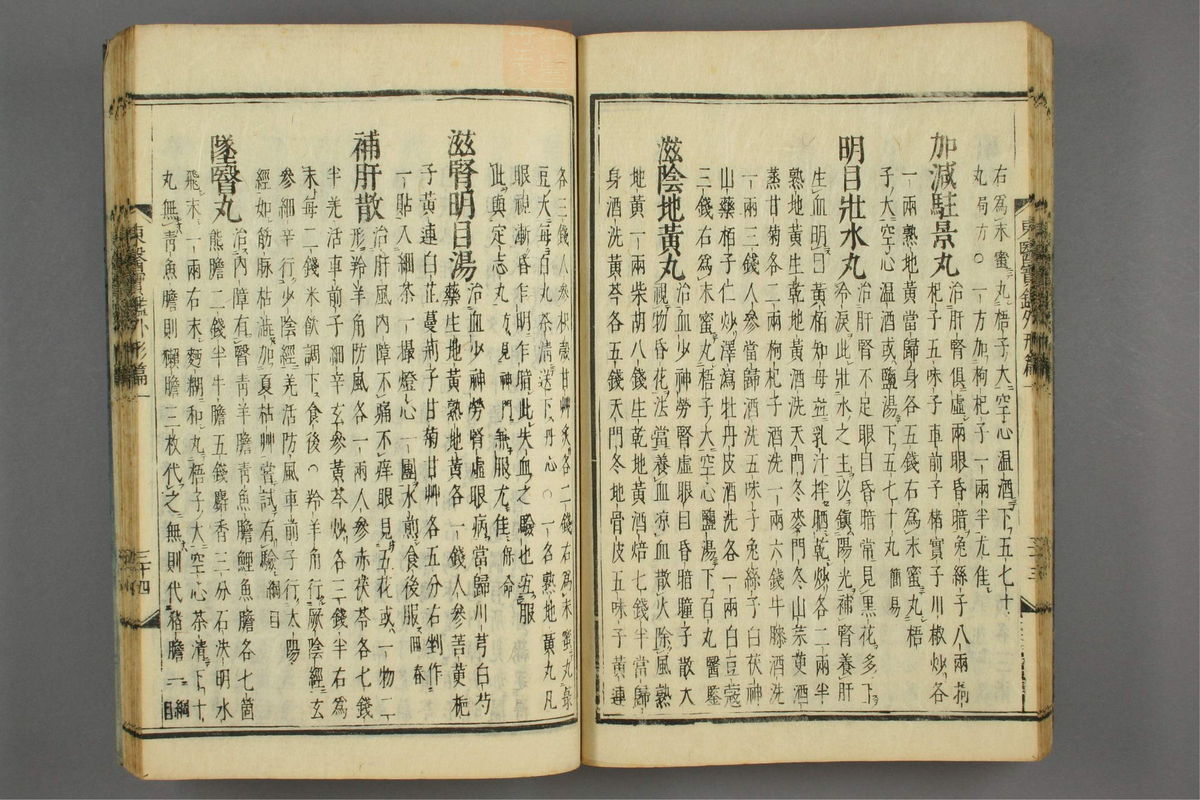 右爲末蜜丸梧子大空心温酒下五七十
丸局方○一方加枸杞子一兩半尤佳
加減駐景丸
治肝腎俱虛兩眼昏暗兔絲子八兩枸
杞子五味子車前子楮實子川椒炒各
一兩熟地黃當歸身各五錢右爲末蜜丸梧
子大空心温酒或鹽湯下五七十丸簡易
明目壯水丸
治肝腎不足眼目昏暗常見黑花多下
冷淚此壯水之主以鎭陽光補腎養肝
生血明目黃栢知母並乳汁拌晒乾炒各二兩半
熟地黃生乾地黃酒洗天門冬麥門冬山茱萸酒
蒸甘菊各二兩枸杞子酒洗一兩六錢牛膝酒洗
一兩三錢人參當歸酒洗五味子兔絲子白茯神
山藥栢子仁炒澤瀉牡丹皮酒洗各一兩白豆蔻
三錢右爲末蜜丸梧子大空心鹽湯下百丸醫鑒
滋陰地黃丸
治血少神勞腎虛眼目昏暗瞳子散大
視物昏花法當養血凉血散火除風熱
地黃一兩柴胡八錢生乾地黃酒焙七錢半當歸
身酒洗黃芩各五錢天門冬地骨皮五味子黃連
東醫寶鑑外形篇一
三十三
各三錢人參枳殼甘艸炙各二錢右爲末蜜丸菉
豆大每百丸茶淸送下丹心○一名熟地黃丸凡
眼視漸昏乍明乍暗此失血之驗也
此與定志丸方見神門兼服尤佳保命
滋腎明目湯
治血少神勞腎虛眼病當歸川芎白芍
藥生地黃熟地黃各一錢人參苦莄梔
子黃連白芷蔓荊子甘菊甘艸各五分右剉作
一貼入細茶一撮燈心一團水煎食後服回春
補肝散
治肝風內障不痛不痒眼見五花或一物二
形羚羊角防風各一兩人參赤茯苓各七錢
半羌活車前子細辛玄參黃芩炒各三錢半右爲
末每二錢米飮調下食後○羚羊角行厥陰經玄
參細辛行少陰經羌活防風車前子行太陽
經如筋脉枯澁加夏枯艸嘗試有驗綱目
墜瞖丸
治內障有瞖靑羊膽靑魚膽鯉魚膽各七箇
熊膽二錢半牛膽五錢麝香三分石決明水
飛末一兩右末麵糊和丸梧子大空心茶淸下十
丸無靑魚膽則獺膽三枚代之無則代猪膽一綱目
東醫寶鑑外形篇一
三十四